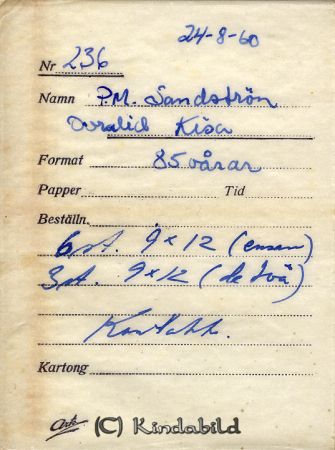 24-8-60
Nr 236
Namn P.M. Sandström
Kisa
Format 85 vårar
Papper Tid
Beställn.
6 st. 9x12 (ensam)
3 st. 9x12 (de två)
Kontakt.
Kartong
(C) Kindabild